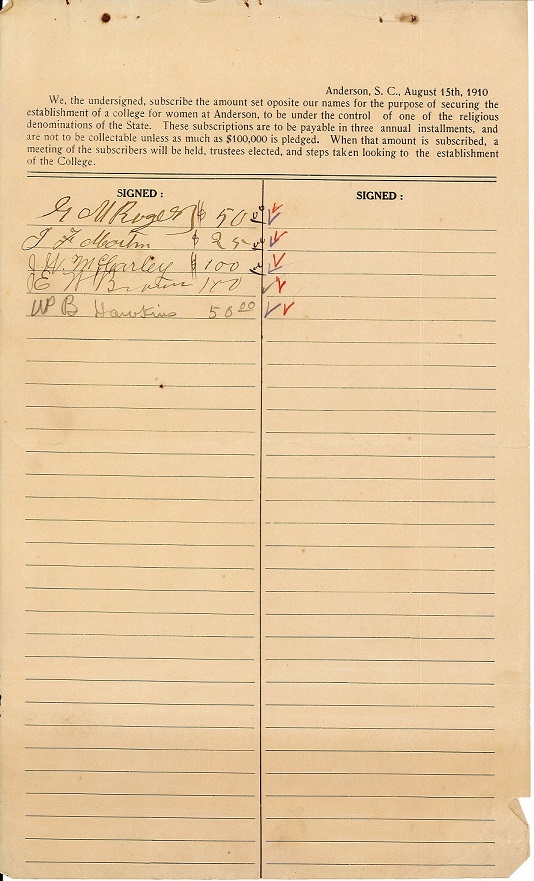 Anderson, S. C., August 15th, 1910
We, the undersigned, subscribe the amount set oposite our names for the purpose of securing the
establishment of a college for women at Anderson, to be under the control of one of the religious
denominations of the State. These subscriptions are to be payable in three annual installments, and
are not to be collectable unless as much as $100,000 is pledged. When that amount is subscribed, a
meeting of the subscribers will be held, trustees elected, and steps taken looking to the establishment
of the College.
SIGNED : SIGNED :
G M Roger $ 50 00
J F Martin $ 25 00
McCarley $ 100 00
E W Brown 100
W B Hawkins 50 00